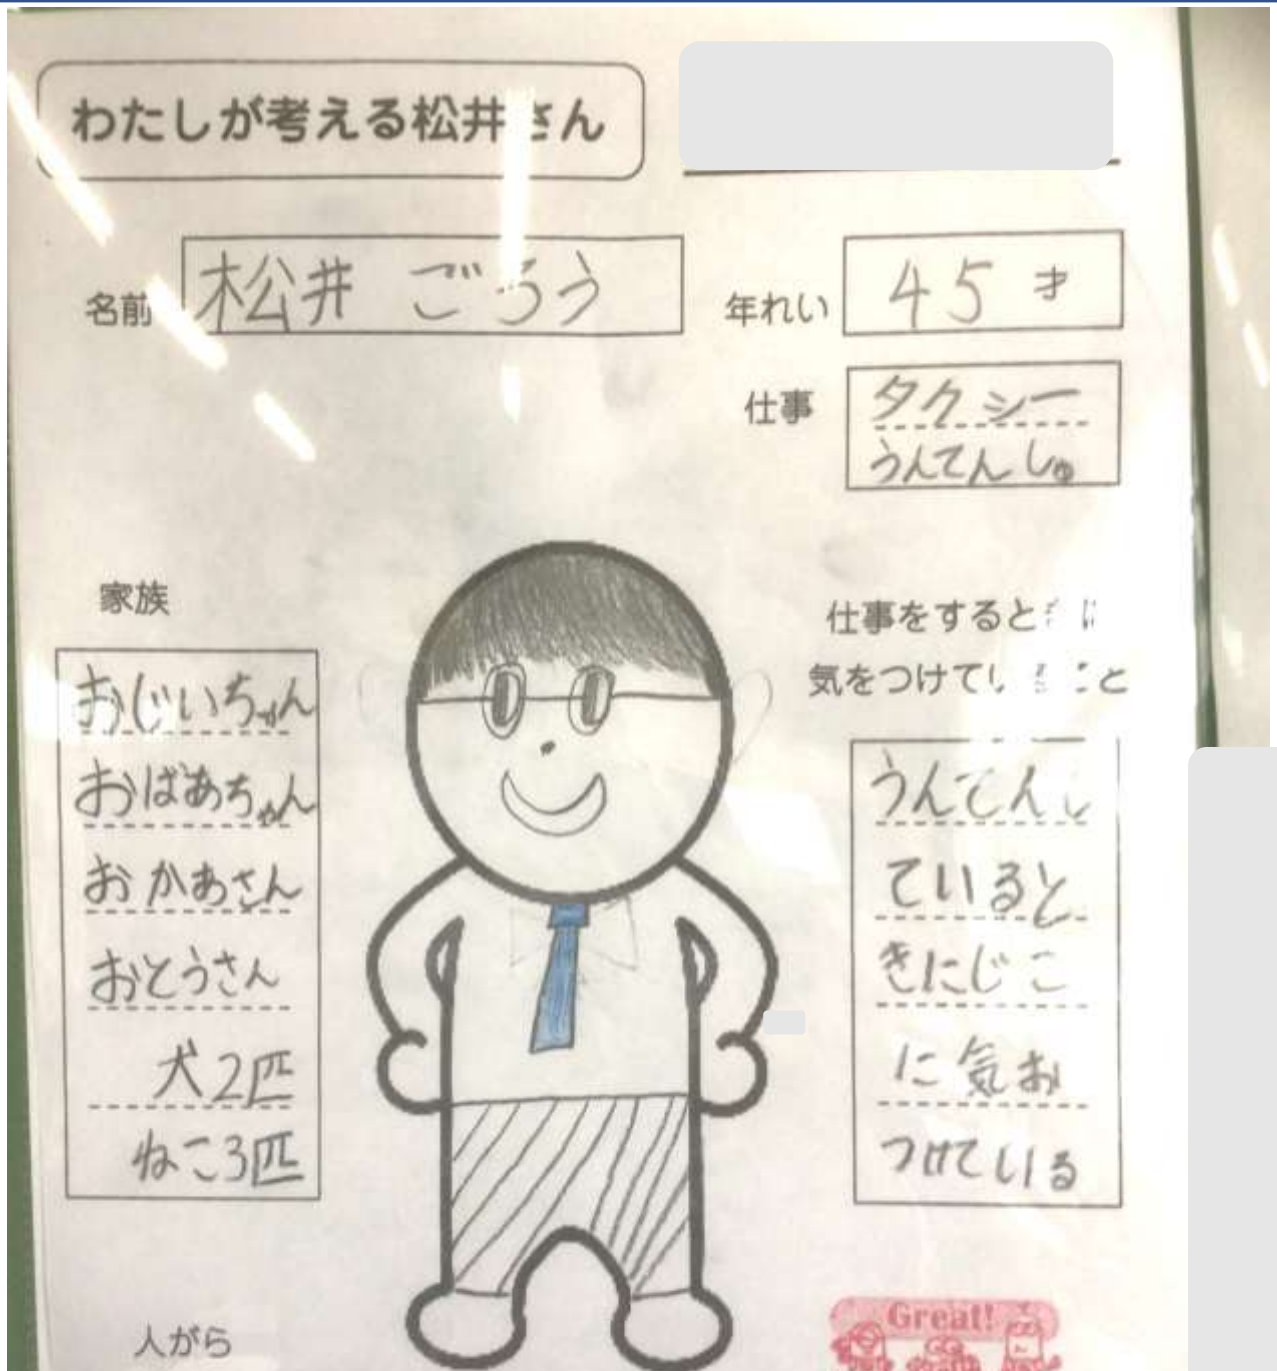 わたしが考える松井さん
名前 松井 ごろう
年れい 45才
仕事 タクシー
うんてんしゅ
家族
おじいちゃん
おばあちゃん
おかあさん
おとうさん
犬2匹
ねこ3匹
仕事をするときに
気をつけていること
うんてんし
ていると
きにじこ
に気お
つけている
人がら
Great!